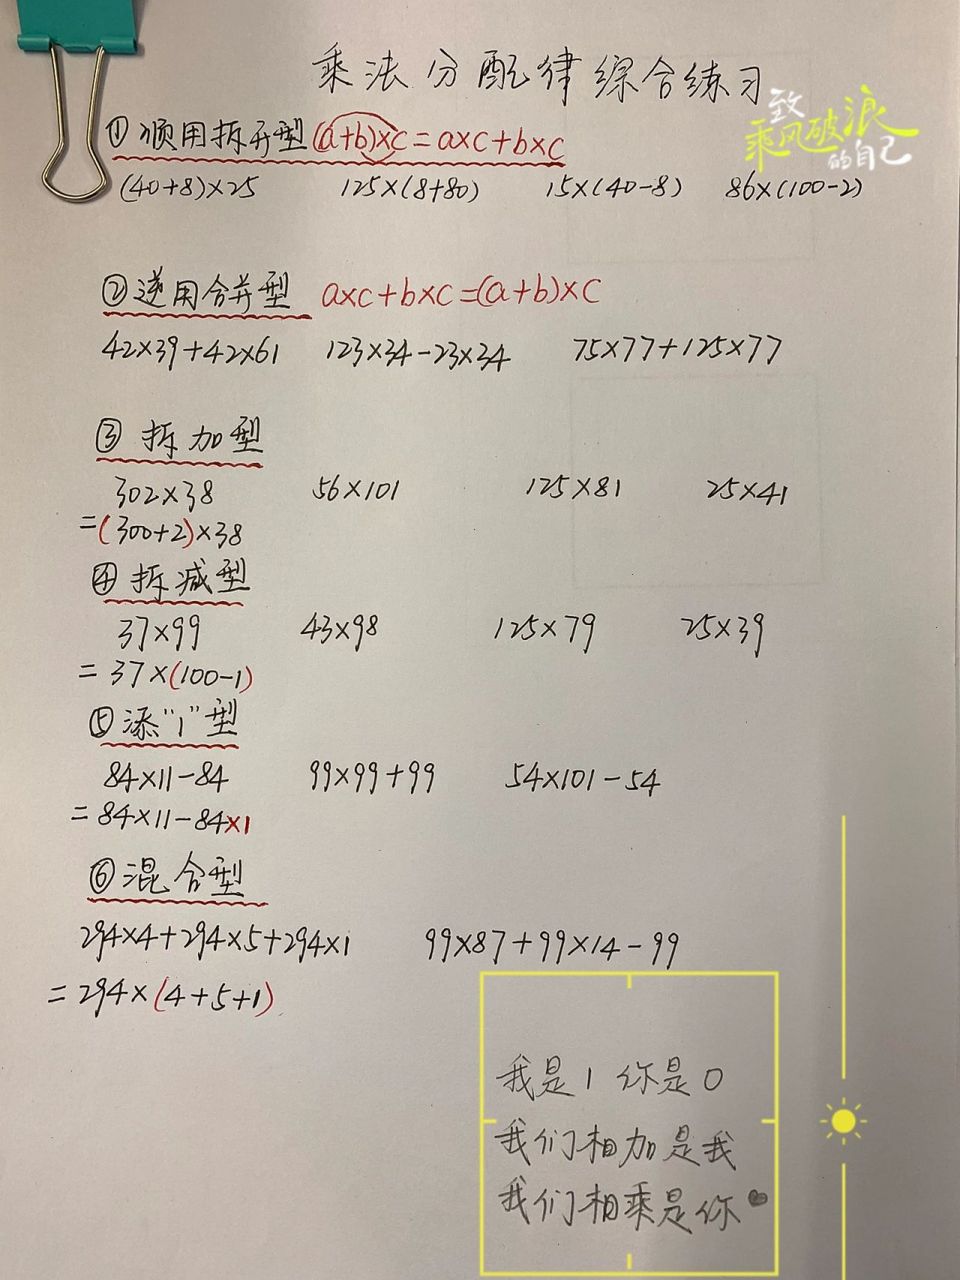 乘法分配律综合练习
致
乘风破浪
的自己
①顺用拆开型(a+b)×c=a×c+b×c
(40+8)×25 125×(8+80) 15×(40-8) 86×(100-2)
②逆用合并型 a×c+b×c=(a+b)×c
42×39+42×61 123×34-23×34 75×77+125×77
③ 拆加型
302×38 56×101 125×81 25×41
=(300+2)×38
④拆减型
37×99 43×98 125×79 25×39
=37×(100-1)
⑤添“1”型
84×11-84 99×99+99 54×101-54
=84×11-84×1
⑥混合型
294×4+294×5+294×1 99×87+99×14-99
=294×(4+5+1)
我是1 你是0
我们相加是我
我们相乘是你